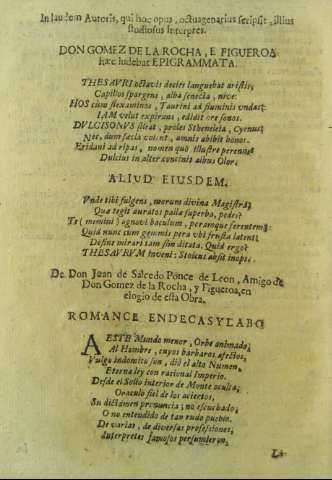 In laudem Autoris, qui hoc opus, octuagenarius scripsit, illius
studiosus Interpres.
DON GOMEZ DE LA ROCHA, E FIGUEROA
hæc ludebat EPIGRAMMATA.
THESAVRI octavis docies languebat aristis,
Capillos spargens, alba senecta, nive:
HOS cum flexaminos, Taurini ad fluminis undas:
IAM velut expirans, edidit ore sonos.
DVLCISONVS sileat, proles Stheneleia, Cycnus;
Nec, dum facta volent, amnis abibit honor.
Eridani ad ripas, nomen quò illustre perennet
Dulcius in alter continit albus Olor.
ALIUD EIUSDEM.
Vnde tibi fulgens, morum divina Magistra,
Qua tegit auratos palla superba, pedes?
Te (memini) agnovi baculum, peramque ferentem:
Quid nunc cum gemmis pera vbi frusta latent?
Desine mirari tam sim ditata. Quid ergo?
THESAVRVM inveni: Stoicus absit inops.
De Don Juan de Salcedo Ponce de Leon, Amigo de
Don Gomez de la Rocha, y Figueroa, en
elogio de esta Obra.
ROMANCE ENDECASYLABO
A ESTE Mundo menor, Orbe animado,
Al Hombre, cuyos barbaros afectos,
Vulgo indomito son, diò el alto Numen
Eterna ley con racional Imperio.
Desde el Solio interior de Monte oculta,
Oraculo fiel de los aciertos,
Su dictamen pronuncia; no escuchado,
O no entendido de tan rudo pueblo.
De varias, de diversas professiones,
Interpretes famosos persumieron,